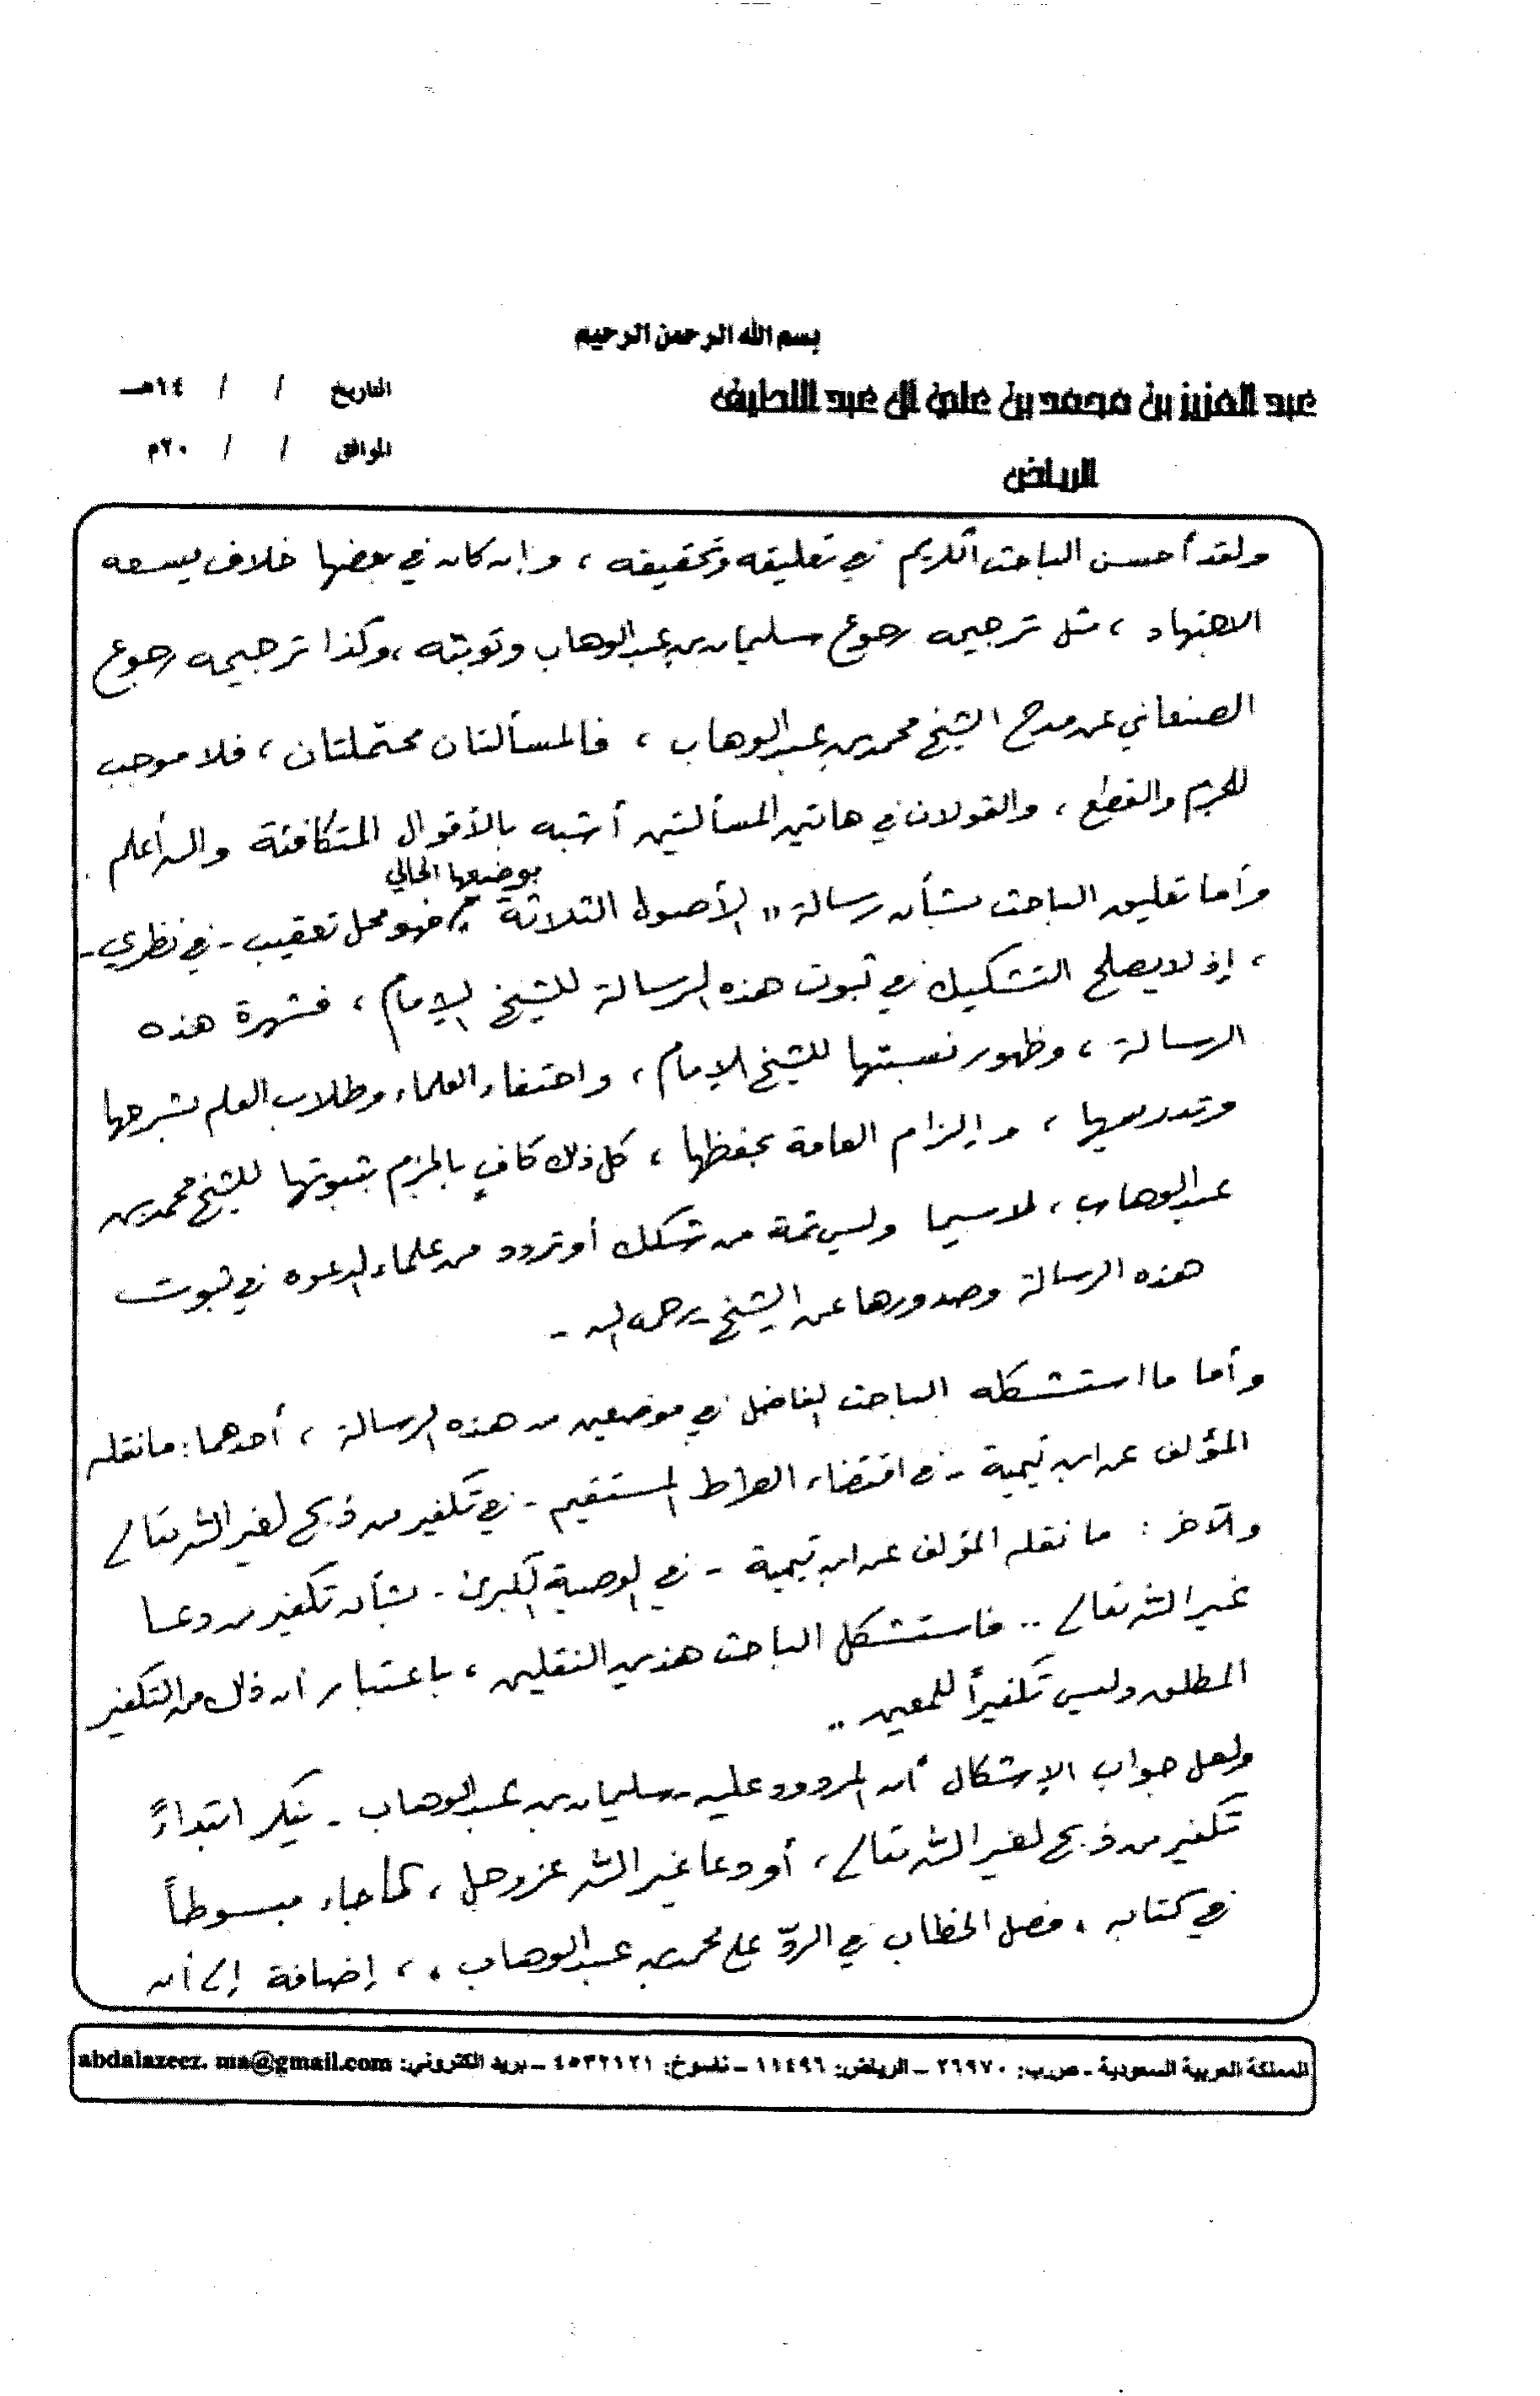 بسم الله الرحمن الرحيم
عبد العزيز بن محمد بن علي آل عبد اللطيف
الرياض
التاريخ / / ١٤هـ
الموافق / / ٢٠م
ولقد أحسن الباحث الكريم في تعليقه وتحقيقه ، وإن كان في بعضها خلاف يسعه
الاجتهاد ، مثل ترجيحه رجوع سليمان بن عبد الوهاب وتوبته ، وكذا ترجيحه رجوع
الصنعاني عن مدح الشيخ محمد بن عبد الوهاب ، فالمسألتان محتملتان ، فلا موجب
للجزم والقطع ، والقولان في هاتين المسألتين أشبه بالأقوال المتكافئة والله أعلم .
وأما تعليق الباحث بشأن رسالة " الأصول الثلاثة " بوضعها الحالي فهو محل تعقيب - في نظري -
، إذ لا يصلح التشكيك في ثبوت هذه الرسالة للشيخ الإمام ، فشهرة هذه
الرسالة ، وظهور نسبتها للشيخ الإمام ، واحتفاء العلماء وطلاب العلم بشرحها
وتدريسها ، وإلزام العامة بحفظها ، كل ذلك كافٍ بالجزم بثبوتها للشيخ محمد بن
عبد الوهاب ، لا سيما وليس ثمة من تشكك أو تردد من علماء الدعوة في ثبوت
هذه الرسالة وصدورها عن الشيخ - رحمه الله -
وأما ما استشكله الباحث الفاضل في موضعين من هذه الرسالة ، أحدهما : ما نقله
المؤلف عن ابن تيمية - في اقتضاء الصراط المستقيم - في تكفير من ذبح لغير الله تعالى
والآخر : ما نقله المؤلف عن ابن تيمية - في الوصية الكبرى - بشأن تكفير من دعا
غير الله تعالى .. فاستشكل الباحث هذين النقلين ، باعتبار أن ذلك من التكفير
المطلق وليس تكفيراً للمعين ..
ولعل جواب الإشكال أن المردود عليه - سليمان بن عبد الوهاب - ينكر ابتداءً
تكفير من ذبح لغير الله تعالى ، أو دعا غير الله عز وجل ، كما جاء مبسوطاً
في كتابه " فصل الخطاب في الردّ على محمد بن عبد الوهاب " ، إضافة إلى أن
المملكة العربية السعودية - ص.ب: ٢٦٩٧٠ - الرياض: ١١٤٩٦ - ناسوخ: ٤٥٣٢١٢١ - بريد الكتروني: abdalazeez.ma@gmail.com